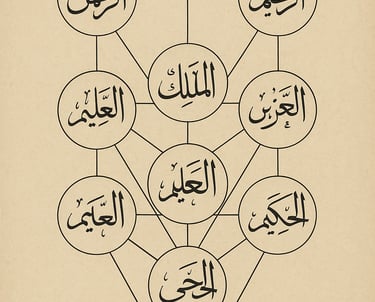 الرحمن
الرحيم
المَلِك
العَّلِيم
العَّزِيز
العَلِيم
العَّلِيم
الحَكِيم